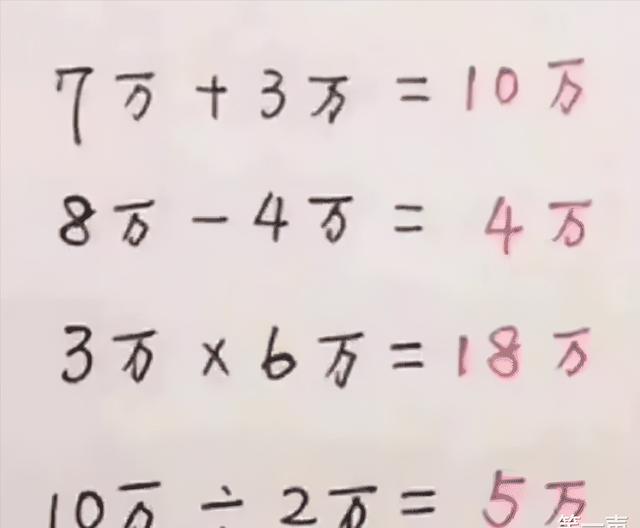 7万+3万=10万
8万-4万=4万
3万×6万=18万
10万÷2万=5万
第一声